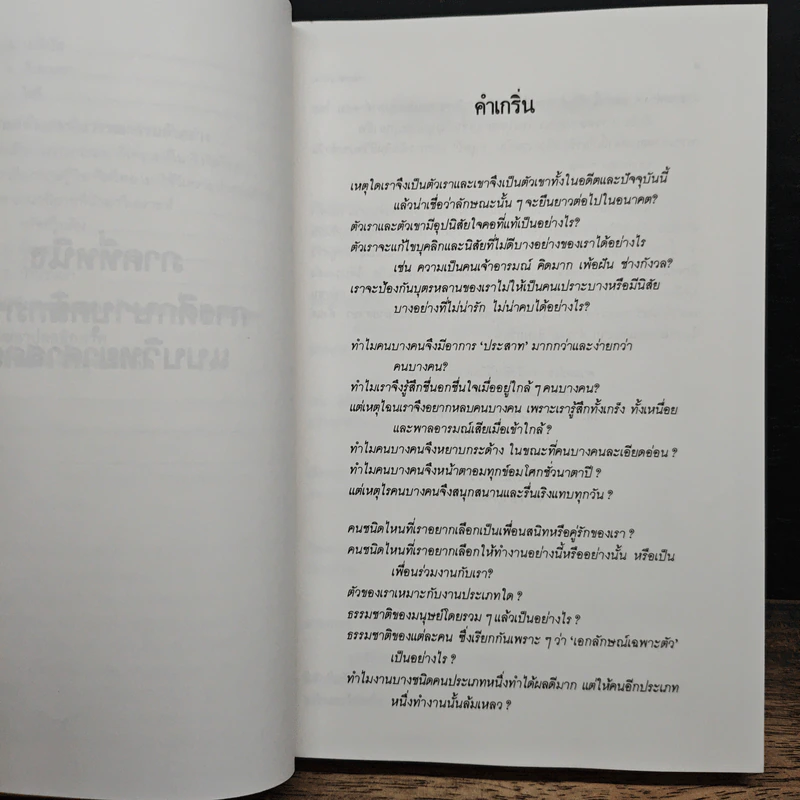 คำเกริ่น
เหตุใดเราจึงเป็นตัวเราและเขาจึงเป็นตัวเขาทั้งในอดีตและปัจจุบันนี้
แล้วน่าเชื่อว่าลักษณะนั้น ๆ จะยืนยาวต่อไปในอนาคต?
ตัวเราและตัวเขามีอุปนิสัยใจคอที่แท้เป็นอย่างไร?
ตัวเราจะแก้ไขบุคลิกและนิสัยที่ไม่ดีบางอย่างของเราได้อย่างไร
เช่น ความเป็นคนเจ้าอารมณ์ คิดมาก เพ้อฝัน ช่างกังวล?
เราจะป้องกันบุตรหลานของเราไม่ให้เป็นคนเปราะบางหรือมีนิสัย
บางอย่างที่ไม่น่ารัก ไม่น่าคบได้อย่างไร?
ทำไมคนบางคนจึงมีอาการ ‘ประสาท’ มากกว่าและง่ายกว่า
คนบางคน?
ทำไมเราจึงรู้สึกชื่นอกชื่นใจเมื่ออยู่ใกล้ ๆ คนบางคน?
แต่เหตุไฉนเราจึงอยากหลบคนบางคน เพราะเรารู้สึกทั้งเกร็ง ทั้งเหนื่อย
และพาลอารมณ์เสียเมื่อเข้าใกล้ ?
ทำไมคนบางคนจึงหยาบกระด้าง ในขณะที่คนบางคนละเอียดอ่อน ?
ทำไมคนบางคนจึงหน้าตาอมทุกข์อมโศกชั่วนาตาปี ?
แต่เหตุไรคนบางคนจึงสนุกสนานและรื่นเริงแทบทุกวัน ?
คนชนิดไหนที่เราอยากเลือกเป็นเพื่อนสนิทหรือคู่รักของเรา ?
คนชนิดไหนที่เราอยากเลือกให้ทำงานอย่างนี้หรืออย่างนั้น หรือเป็น
เพื่อนร่วมงานกับเรา?
ตัวของเราเหมาะกับงานประเภทใด ?
ธรรมชาติของมนุษย์โดยรวม ๆ แล้วเป็นอย่างไร ?
ธรรมชาติของแต่ละคน ซึ่งเรียกกันเพราะ ๆ ว่า ‘เอกลักษณ์เฉพาะตัว’
เป็นอย่างไร ?
ทำไมงานบางชนิดคนประเภทหนึ่งทำได้ผลดีมาก แต่ให้คนอีกประเภท
หนึ่งทำงานนั้นล้มเหลว ?